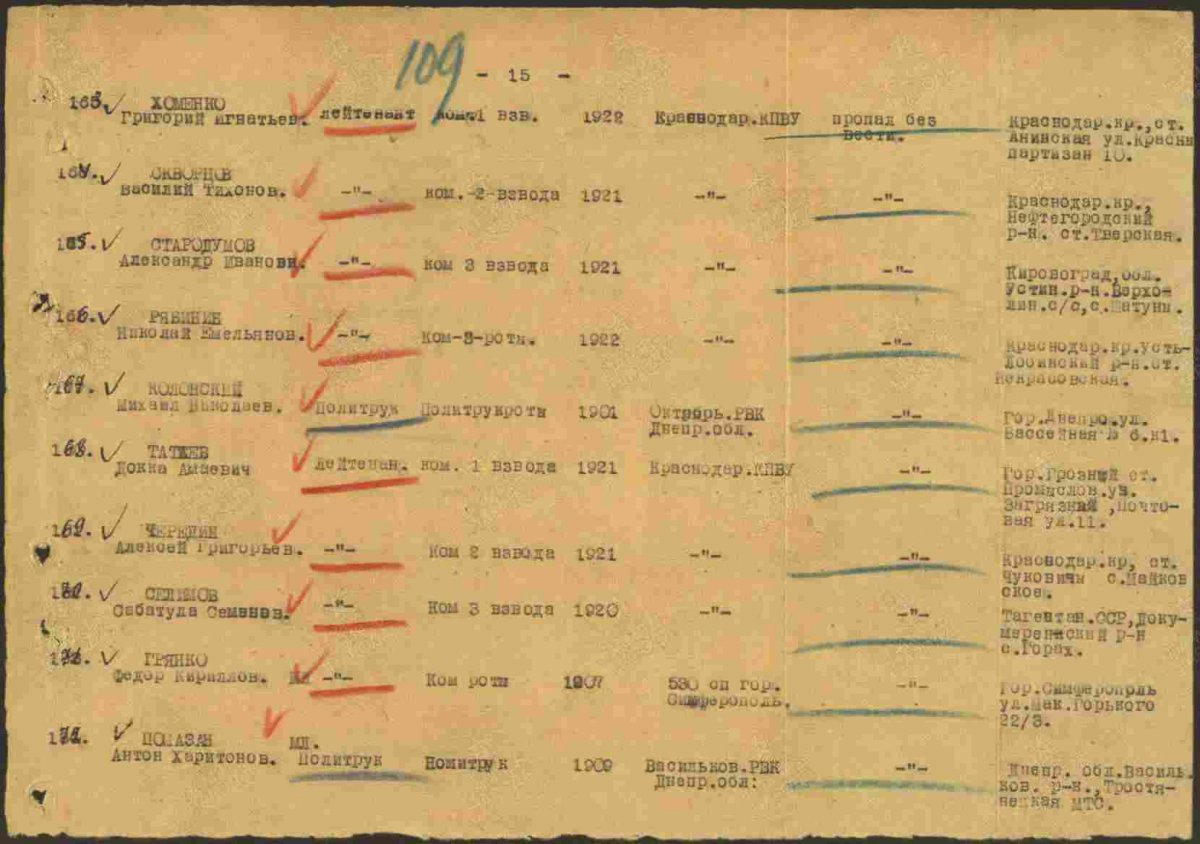 109
- 15 -
163. ХОМЕНКО
Григорий Игнатьев. лейтенант ком.1 взв. 1922 Краснодар.КПВУ пропал без вести. Краснодар.кр.,ст.
Анинская ул.Красн
партизан 10.
164. СКВОРЦОВ
Василий Тихонов. -"- ком.-2-взвода 1921 -"- -"- Краснодар.кр.,
Нефтегородский
р-н. ст.Тверская.
165. СТАРОДУМОВ
Александр Иванови. -"- ком 3 взвода 1921 -"- -"- Кировоград,обл.
Устин.р-н.Верхо-
лин.с/с,с.Шатуны.
166. РЯБИНИН
Николай Емельянов. -"- ком-3-роты. 1922 -"- -"- Краснодар.кр.Усть-
Лобинский р-н.ст.
Некрасовская.
167. КОЛОНСКИЙ
Михаил Николаев. Политрук Политрукроты 1901 Октябрь.РВК -"- Гор.Днепро.ул.
Днепр.обл. Бассейная № 6.к1.
168. ТАТАЕВ
Докка Амаевич лейтенан. ком. 1 взвода 1921 Краснодар.КПВУ -"- Гор.Грозный ст.
Промыслов.ув.
Загрязный ,Почто-
вая ул.11.
169. ЧЕРЕДИН
Алексей Григорьев. -"- Ком 2 взвода 1921 -"- -"- Краснодар.кр, ст.
Чуковичи с.Майков
ское.
170. СЕЛИМОВ
Сабатула Семенов. -"- Ком 3 взвода 1920 -"- -"- Тагентан.ССР,Доку-
с.Горах.
171. ГРЯНКО
Федор Кириллов. мл -"- Ком роты 1907 530 сп гор. -"- Гор.Симферопрль
Симферополь. ул.Мак.Горького
22/3.
172. ПОЛАЗАН мл.
Антон Харитонов. Политрук Помитрук 1909 Васильков.РВК -"- Днепр. обл.Василь.
Днепр.обл: ков. р-н.,Тростя-
нецкая МТС.